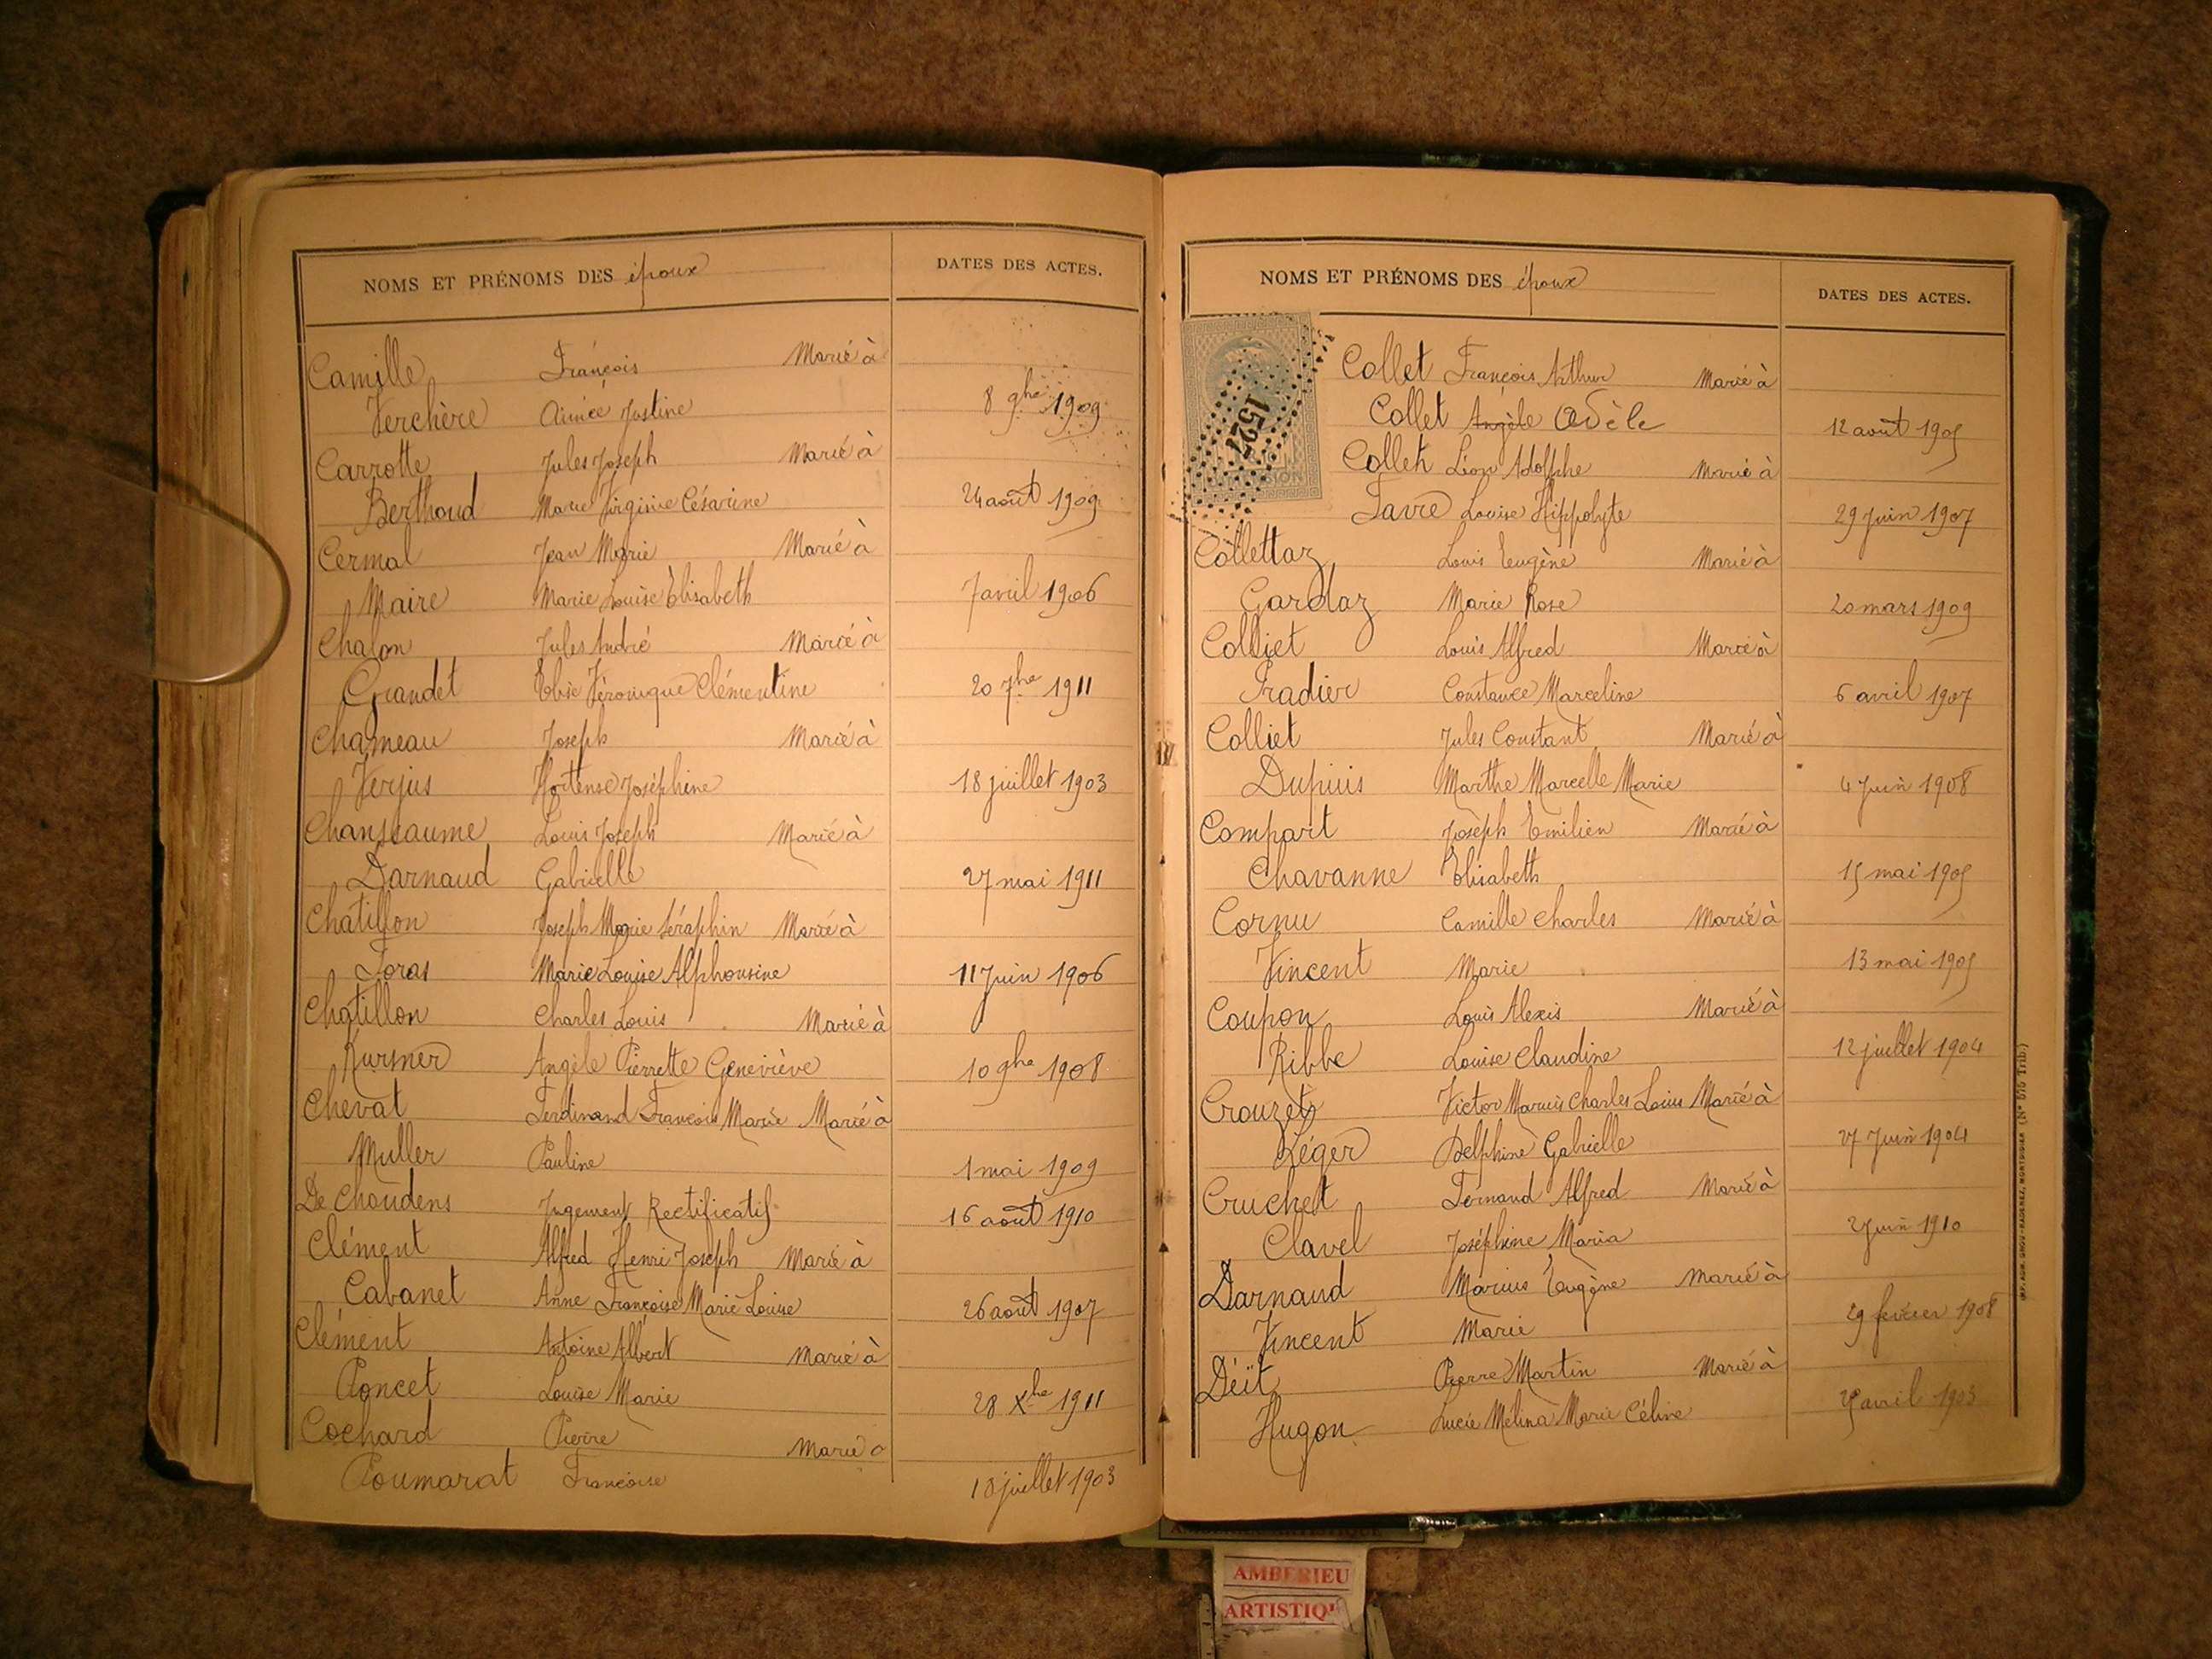 NOMS ET PRÉNOMS DES époux DATES DES ACTES.
Camille François Marié à
Verchère Aimée Justine 8 9bre 1909
Carrotte Jules Joseph Marié à
Berthoud Marie Virginie Césarine 24 août 1909
Cermal Jean Marie Marié à
Maire Marie Louise Élisabeth 7 avril 1906
Chalon Jules André Marié à
Grandet Elise Véronique Clémentine 20 7bre 1911
Chameau Joseph Marié à
Verjus Hortense Joséphine 18 juillet 1903
Chansseaume Louis Joseph Marié à
Darnaud Gabrielle 27 mai 1911
Chatillon Joseph Marie Séraphin Marié à
Foras Marie Louise Alphonsine 11 Juin 1906
Chatillon Charles Louis Marié à
Kursner Angèle Pierrette Geneviève 10 9bre 1908
Chevat Ferdinand François Marie Marié à
Muller Pauline 1 mai 1909
De Choudens Jugement Rectificatif 16 août 1910
Clément Alfred Henri Joseph Marié à
Cabanet Anne Françoise Marie Louise 26 août 1907
Clément Antoine Albert Marié à
Poncet Louise Marie 28 Xbre 1911
Cochard Pierre Marié à
Poumarat Françoise 18 juillet 1903
NOMS ET PRÉNOMS DES époux DATES DES ACTES.
1527
Collet François Arthur Marié à
Collet Angèle Adèle 12 août 1905
Collet Léon Adolphe Marié à
Favre Louise Hippolyte 29 Juin 1907
Collettaz Louis Eugène Marié à
Gardaz Marie Rose 20 mars 1909
Colliet Louis Alfred Marié à
Fradier Constance Marceline 6 avril 1907
Colliet Jules Constant Marié à
Dupuis Marthe Marcelle Marie 4 Juin 1908
Compart Joseph Emilien Marié à
Chavanne Elisabeth 15 mai 1905
Cornu Camille Charles Marié à
Vincent Marie 13 mai 1905
Coupon Louis Alexis Marié à
Ribbe Louise Claudine 12 juillet 1904
Crouzet Victor Marius Charles Louis Marié à
Léger Delphine Gabrielle 27 Juin 1904
Cruchet Fernand Alfred Marié à
Clavel Joséphine Maria 2 Juin 1910
Darnaud Marius Eugène Marié à
Vincent Marie 29 février 1908
Déït Pierre Martin Marié à
Hugon Lucie Mélina Marie Céline avril 1903
AMBERIEU
ARTISTIQ